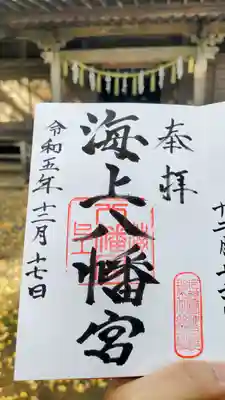 奉拝
海上八幡宮
令和五年十二月十七日